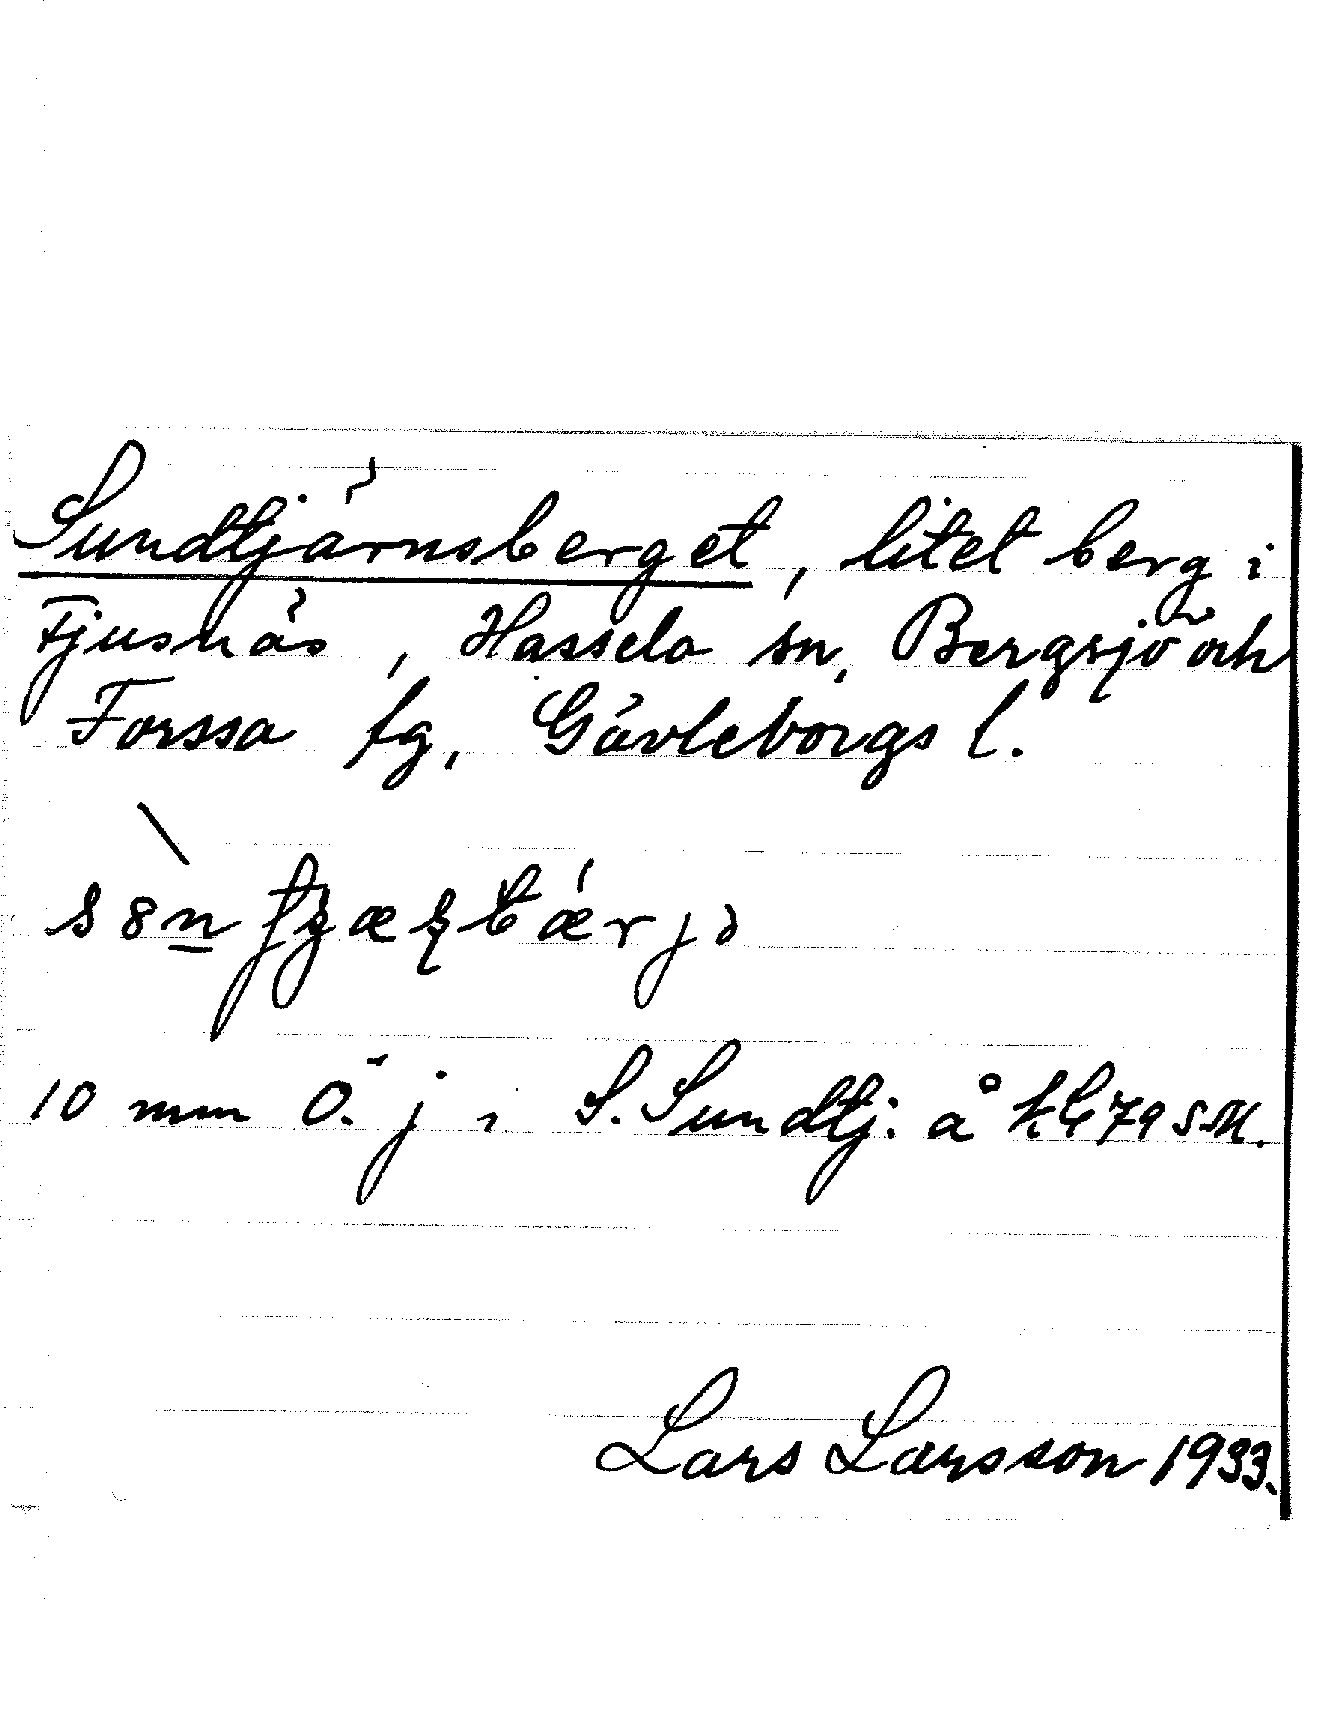 Sundtjärnsberget, litet berg i
Fjusnäs, Hassela sn, Bergsjö och
Forssa tg, Gävleborgs l.
10 mm Ö. j i S. Sundtj. å kbl 79 SM.
Lars Larsson 1933.